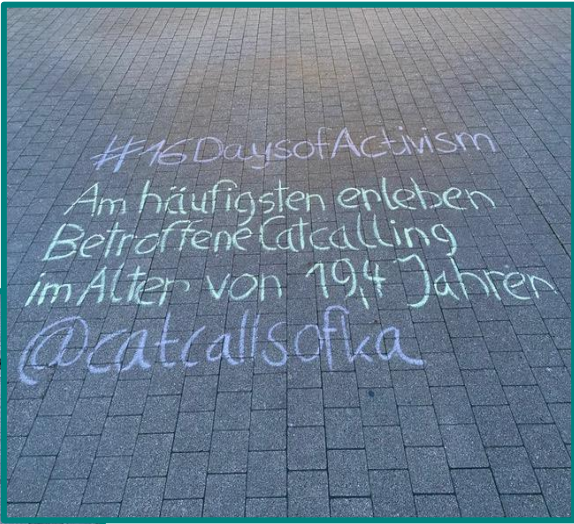 #16DaysofActivism
Am häufigsten erleben
Betroffene Catcalling
im Alter von 19,4 Jahren
@catcallsofka